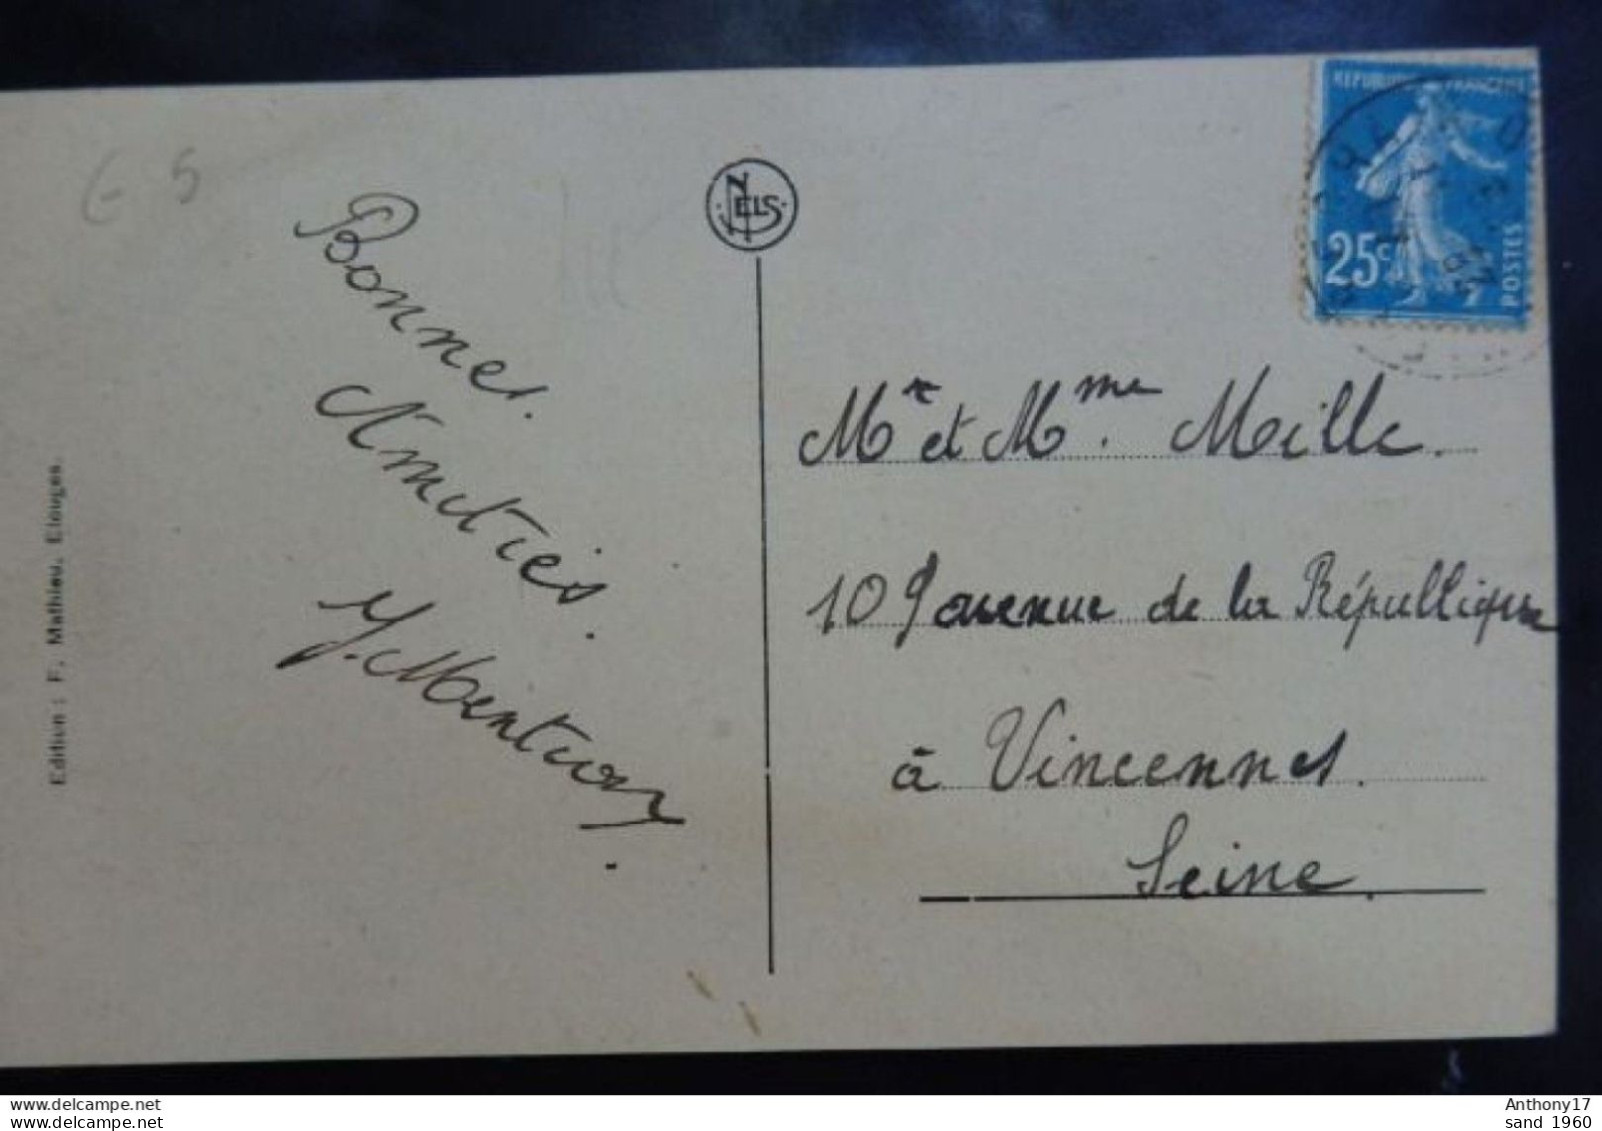 G 5
Bonnes.
Amitiés.
Edition : F. Mathieu. Elouges.
NELS
REPUBLIQUE FRANÇAISE
25c
POSTES
Mr et Mme. Mille.
109 avenue de la République
à Vincennes.
Seine.
www.delcampe.net
www.delcampe.net
Anthony17
sand_1960